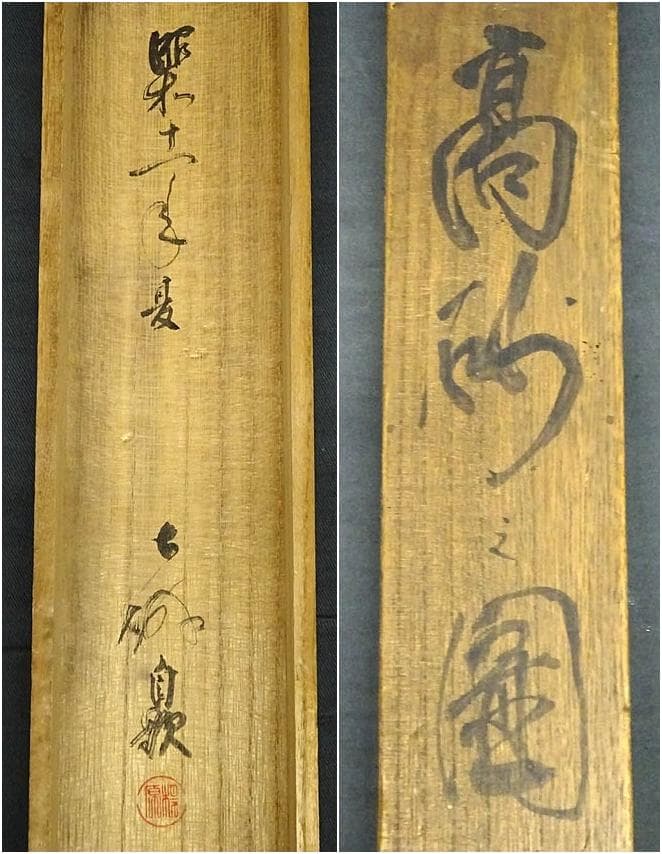 高砂之圖
昭和十一年夏
自題